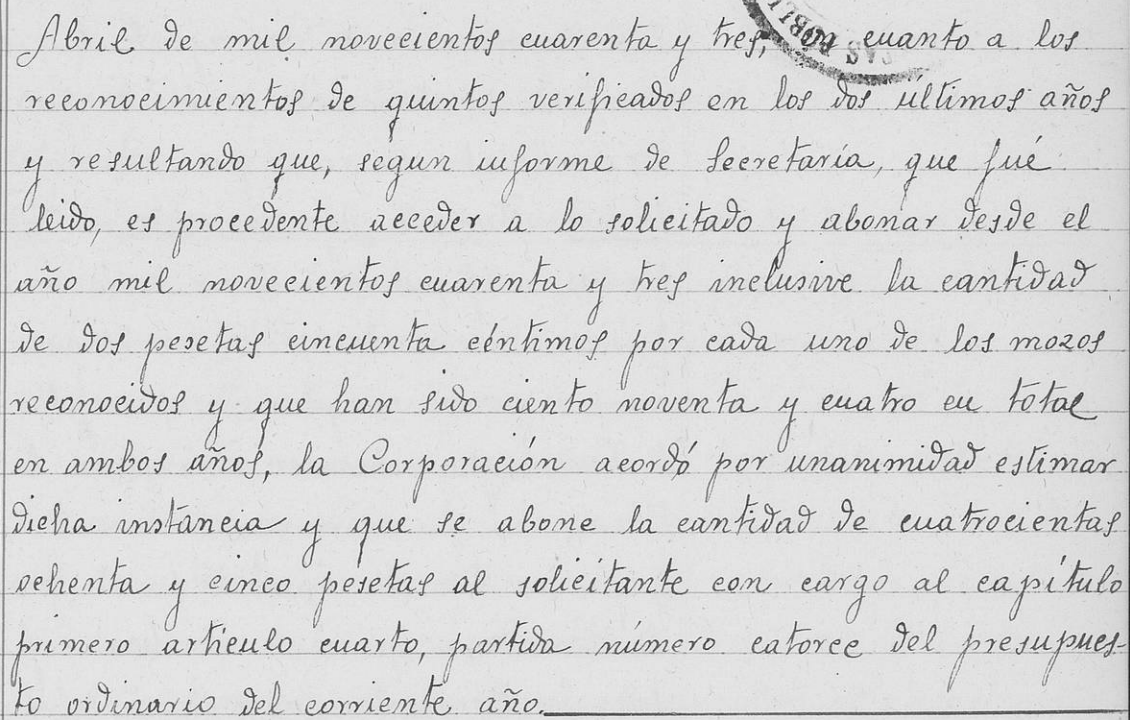 Abril de mil novecientos cuarenta y tres, en cuanto a los
reconocimientos de quintos verificados en los dos ultimos años
y resultando que, segun informe de Secretaría, que fué
leido, es procedente acceder a lo solicitado y abonar desde el
año mil novecientos cuarenta y tres inclusive la cantidad
de dos pesetas cincuenta céntimos por cada uno de los mozos
reconocidos y que han sido ciento noventa y cuatro en total
en ambos años, la Corporación acordó por unanimidad estimar
dicha instancia y que se abone la cantidad de cuatrocientas
ochenta y cinco pesetas al solicitante con cargo al capítulo
primero artículo cuarto, partida número catorce del presupues-
to ordinario del corriente año.